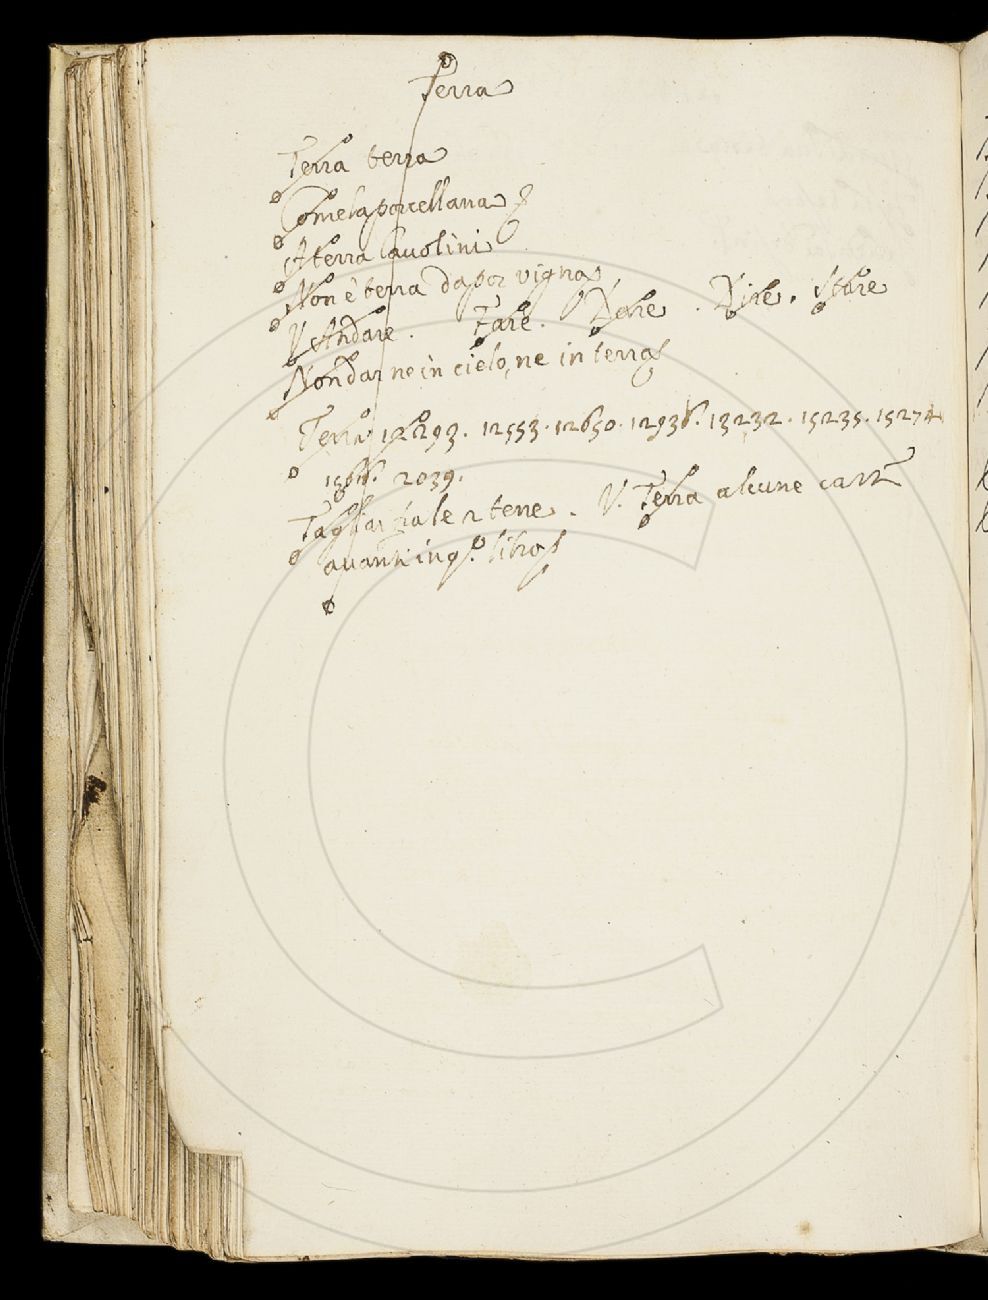 Terra
Terra terra
Come la porcellana
A terra Cavolini
Non è terra da por vigna
V Andare. Fare. Dare. Dire. Stare
Non dar ne in cielo, ne in terra
Terra 12293. 12553. 12650. 12936. 13232. 15235. 15274
2039.
Tagliar 2 terre. V. Terra alcune cart.
avanti in q.o libro